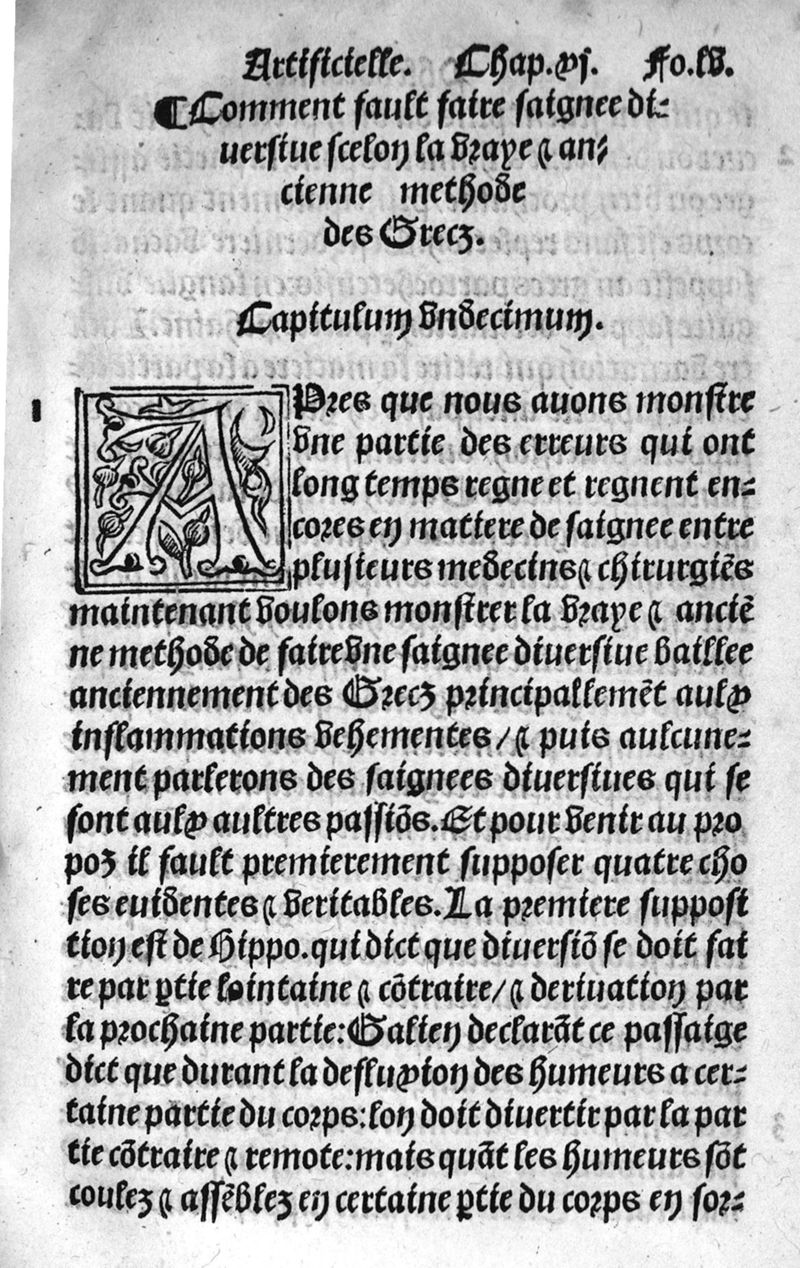 Artificielle. Chap.xj. Fo.lv.
¶Comment fault faire saignee di⸗
uersiue scelon la vraye ⁊ an⸗
cienne methode
des Grecz.
Capitulum vndecimum.
1
APres que nous auons monstre
vne partie des erreurs qui ont
long temps regne et regnent en⸗
cores en matiere de saignee entre
plusieurs medecins ⁊ chirurgiēs
maintenant voulons monstrer la vraye ⁊ anciē
ne methode de faire vne saignee diuersiue baillee
anciennement des Grecz principallemēt aulx
inflammations vehementes/⁊ puis aulcune⸗
ment parlerons des saignees diuersiues qui se
font aulx aultres passiōs. Et pour venir au pro
poz il fault premierement supposer quatre cho
ses euidentes ⁊ veritables. La premiere supposi
tion est de Hippo. qui dict que diuersiō se doit fai
re par ꝑtie lointaine ⁊ cōtraire/⁊ deriuation par
la prochaine partie: Galien declarāt ce passaige
dict que durant la defluxion des humeurs a cer⸗
taine partie du corps: lon doit diuertir par la par
tie cōtraire ⁊ remote: mais quāt les humeurs sōt
coulez ⁊ assēblez en certaine ꝑtie du corps en sor⸗